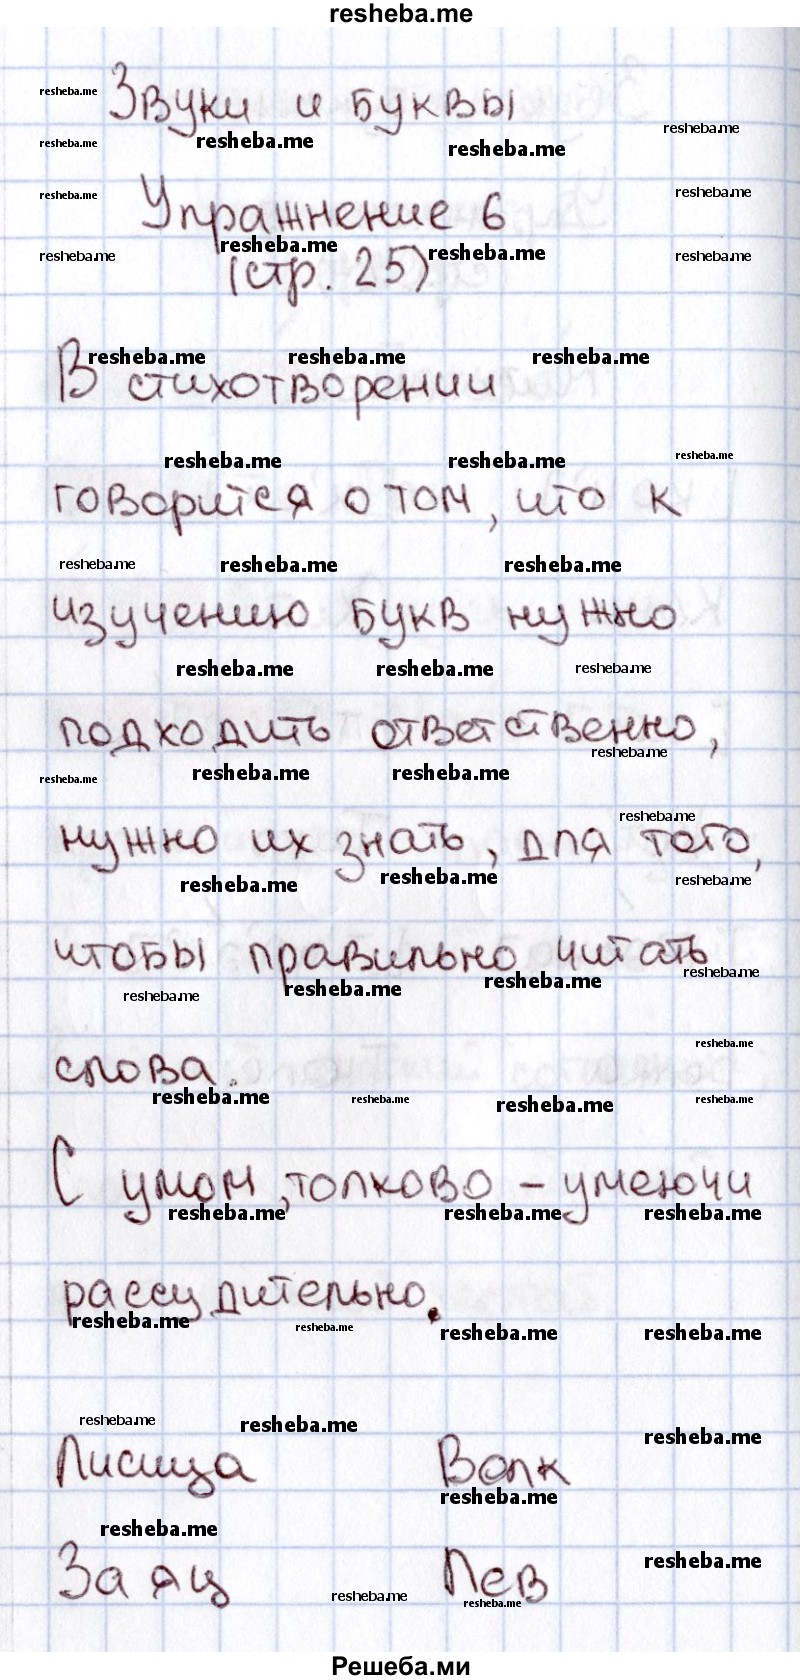 resheba.me
Звуки и буквы
Упражнение 6
(стр. 25)
В стихотворении
говорится о том, что к
изучению букв нужно
подходить ответственно,
нужно их знать, для того,
чтобы правильно читать
слова.
С умом, толково – умеючи
рассудительно.
Лисица Волк
Заяц Лев
Решеба.ми